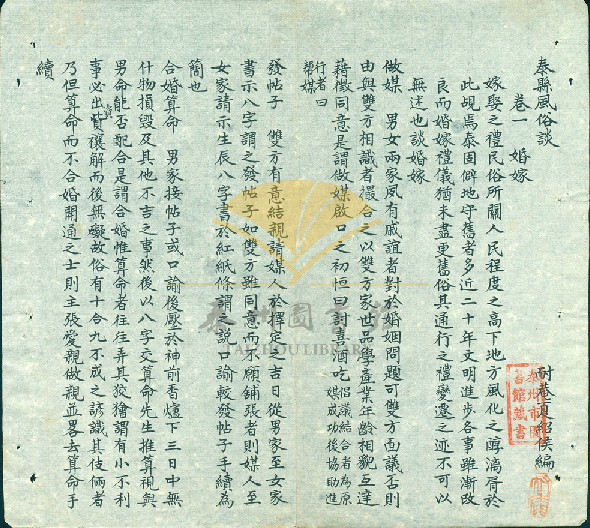 泰縣風俗談
卷一　婚嫁　　耐菴夏紹侯編
嫁娶之禮民俗所關人民程度之高下地方風化之醇漓胥於
此覘焉泰固僻地守舊者多近二十年文明進步各事雖漸改
良而婚嫁禮儀猶未盡更舊俗其通行之禮變遷之迹不可以
無述也談婚嫁
做媒　男女兩家夙有戚誼者對於婚姻問題可雙方面議否則
由與雙方相識者撮合之以雙方家世品學產業年齡相貌互達
藉徵同意是謂做媒啟口之初恒曰討喜酒吃倡議結合者為原媒成功後協助進
行者曰幫媒
發帖子　雙方有意結親請媒人於擇定之吉日從男家至女家
書示八字謂之發帖子如雙方雖同意而不願鋪張者則媒人至
女家請示生辰八字書於紅紙條謂之説口諭較發帖子手續為
簡也
合婚算命　男家接帖子或口諭後壓於神前香爐下三日中無
什物損毀及其他不吉之事然後以八字交算命先生推算視與
男命能否配合是謂合婚惟算命者往往弄其狡獪謂有小不利
事必出貲禳解而後無礙故俗有十合九不成之諺識其伎倆者
乃但算命而不合婚開通之士則主張愛親做親並畧去算命手
續
泰州市圖書館藏書
泰州圖書館
TAIZHOU LIBRARY